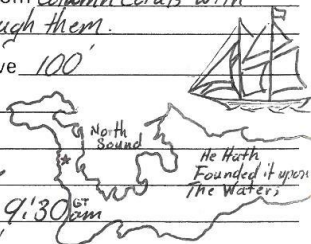 Column Corals with
ough them.
ve 100'
North
Sound
He Hath
Founded it upon
The Waters
9:30 GT
am